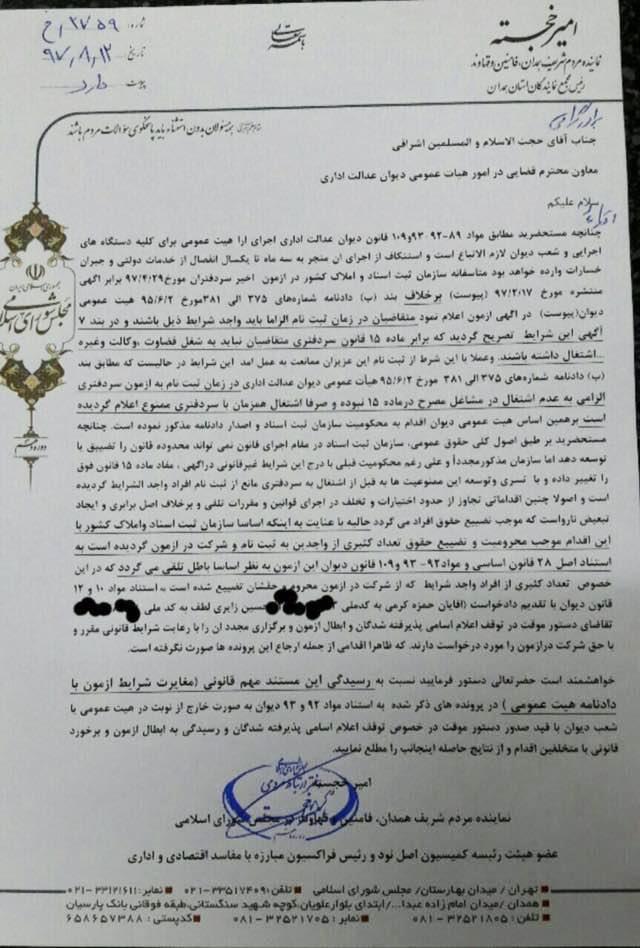 شماره: ۲۷۵۹/خ
تاریخ: ۹۷/۸/۱۲
پیوست: دارد
باسمه تعالی
امیر خجسته
نماینده مردم شریف همدان، فامنین و قهاوند
رئیس مجمع نمایندگان استان همدان
همه مسئولان بدون استثناء باید پاسخگوی سؤالات مردم باشند
برادر گرامی
جناب آقای حجت الاسلام و المسلمین اشرافی
معاون محترم قضایی در امور هیات عمومی دیوان عدالت اداری
سلام علیکم
چنانچه مستحضرید مطابق مواد ۸۹-۹۲-۹۳و۱۰۹ قانون دیوان عدالت اداری اجرای ارا هیت عمومی برای کلیه دستگاه های
اجرایی و شعب دیوان لازم الاتباع است و استنکاف از اجرای ان منجر به سه ماه تا یکسال انفصال از خدمات دولتی و جبران
خسارات وارده خواهد بود متاسفانه سازمان ثبت اسناد و املاک کشور در ازمون اخیر سردفتران مورخ۹۷/۴/۲۹ برابر اگهی
منتشره مورخ ۹۷/۲/۱۷ (پیوست) برخلاف بند (ب) دادنامه شماره‌های ۳۷۵ الی ۳۸۱مورخ ۹۵/۶/۲ هیت عمومی
دیوان(پیوست) در اگهی ازمون اعلام نمود متقاضیان در زمان ثبت نام الزاما باید واجد شرایط ذیل باشند و در بند ۷
آگهی این شرایط تصریح گردید که برابر ماده ۱۵ قانون سردفتری متقاضیان نباید به شغل قضاوت ،وکالت وغیره
...اشتغال داشته باشند. وعملا با این شرط از ثبت نام این عزیزان ممانعت به عمل امد این شرایط در حالیست که مطابق بند
(ب) دادنامه شماره‌های ۳۷۵ الی ۳۸۱ مورخ ۹۵/۶/۲ هیأت عمومی دیوان عدالت اداری در زمان ثبت نام به ازمون سردفتری
الزامی به عدم اشتغال در مشاغل مصرح درماده ۱۵ نبوده و صرفا اشتغال همزمان با سردفتری ممنوع اعلام گردیده
است برهمین اساس هیت عمومی دیوان اقدام به محکومیت سازمان ثبت اسناد و اصدار دادنامه مذکور نموده است. چنانچه
مستحضرید بر طبق اصول کلی حقوق عمومی، سازمان ثبت اسناد در مقام اجرای قانون نمی تواند محدوده قانون را تضییق یا
توسعه دهد اما سازمان مذکورمجدداً و علی رغم محکومیت قبلی با درج این شرایط غیرقانونی دراگهی ، مفاد ماده ۱۵ قانون فوق
را تغییر داده و با تسری وتوسعه این ممنوعیت ها به قبل از اشتغال به سردفتری مانع از ثبت نام افراد واجد الشرایط گردیده
است و اصولا چنین اقداماتی تجاوز از حدود اختیارات و تخلف در اجرای قوانین و مقررات تلقی و برخلاف اصل برابری و ایجاد
تبعیض نارواست که موجب تضییع حقوق افراد می گردد حالیه با عنایت به اینکه اساسا سازمان ثبت اسناد واملاک کشور با
این اقدام موجب محرومیت و تضییع حقوق تعداد کثیری از واجدین به ثبت نام و شرکت در ازمون گردیده است به
استناد اصل ۲۸ قانون اساسی و مواد۹۲- ۹۳ و۱۰۹ قانون دیوان این ازمون به نظر اساسا باطل تلقی می گردد که در این
خصوص تعداد کثیری از افراد واجد شرایط که از شرکت در ازمون محروم و حقشان تضییع شده است به استناد مواد ۱۰ و ۱۲
قانون دیوان با تقدیم دادخواست (اقایان حمزه کرمی به کدملی حسین زایری لطف به کد ملی
تقاضای دستور موقت در توقف اعلام اسامی پذیرفته شدگان و ابطال ازمون و برگزاری مجدد ان را با رعایت شرایط قانونی مقرر و
با حق شرکت درازمون را مورد درخواست دارند. که ظاهرا اقدامی از جمله ارجاع این پرونده ها صورت نگرفته است.
خواهشمند است حضرتعالی دستور فرمایید نسبت به رسیدگی این مستند مهم قانونی (مغایرت شرایط ازمون با
دادنامه هیت عمومی ) در پرونده های ذکر شده به استناد مواد ۹۲ و ۹۳ دیوان به صورت خارج از نوبت در هیت عمومی یا
شعب دیوان با قید صدور دستور موقت در خصوص توقف اعلام اسامی پذیرفته شدگان و رسیدگی به ابطال ازمون و برخورد
قانونی با متخلفین اقدام و از نتایج حاصله اینجانب را مطلع نمایید.
امیر خجسته
نماینده مردم شریف همدان، فامنین و قهاوند در مجلس شورای اسلامی
عضو هیئت رئیسه کمیسیون اصل نود و رئیس فراکسیون مبارزه با مفاسد اقتصادی و اداری
جمهوری اسلامی ایران
مجلس شورای اسلامی
دوره دهم
تهران / میدان بهارستان/ مجلس شورای اسلامی ■ تلفن: ۳۳۵۱۷۴۰۹-۰۲۱ ■ نمابر: ۳۳۱۲۱۶۱۱-۰۲۱
همدان / میدان امام زاده عبدا.../ابتدای بلوارعلویان،کوچه شهید سنگستانی،طبقه فوقانی بانک پارسیان
تلفن: ۳۲۵۲۱۸۰۵ - ۰۸۱ ■ نمابر: ۳۲۵۲۱۷۰۵ - ۰۸۱ ■ کدپستی: ۶۵۸۶۵۷۳۸۸